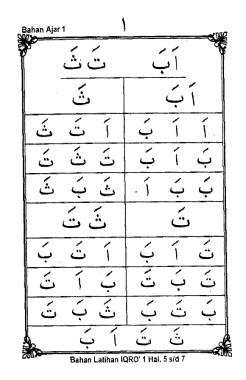 Bahan Ajar 1
١
اَ بَ تَ ثَ
اَ بَ ثَ
اَ اَ بَ اَ تَ ثَ
بَ اَ بَ ثَ تَ ثَ
بَ بَ اَ ثَ بَ ثَ
تَ ثَ تَ
تَ اَ بَ اَ تَ بَ
تَ بَ تَ بَ اَ تَ
بَ تَ بَ ثَ بَ بَ
ثَ تَ اَ بَ
Bahan Latihan IQRO' 1 Hal. 5 s/d 7